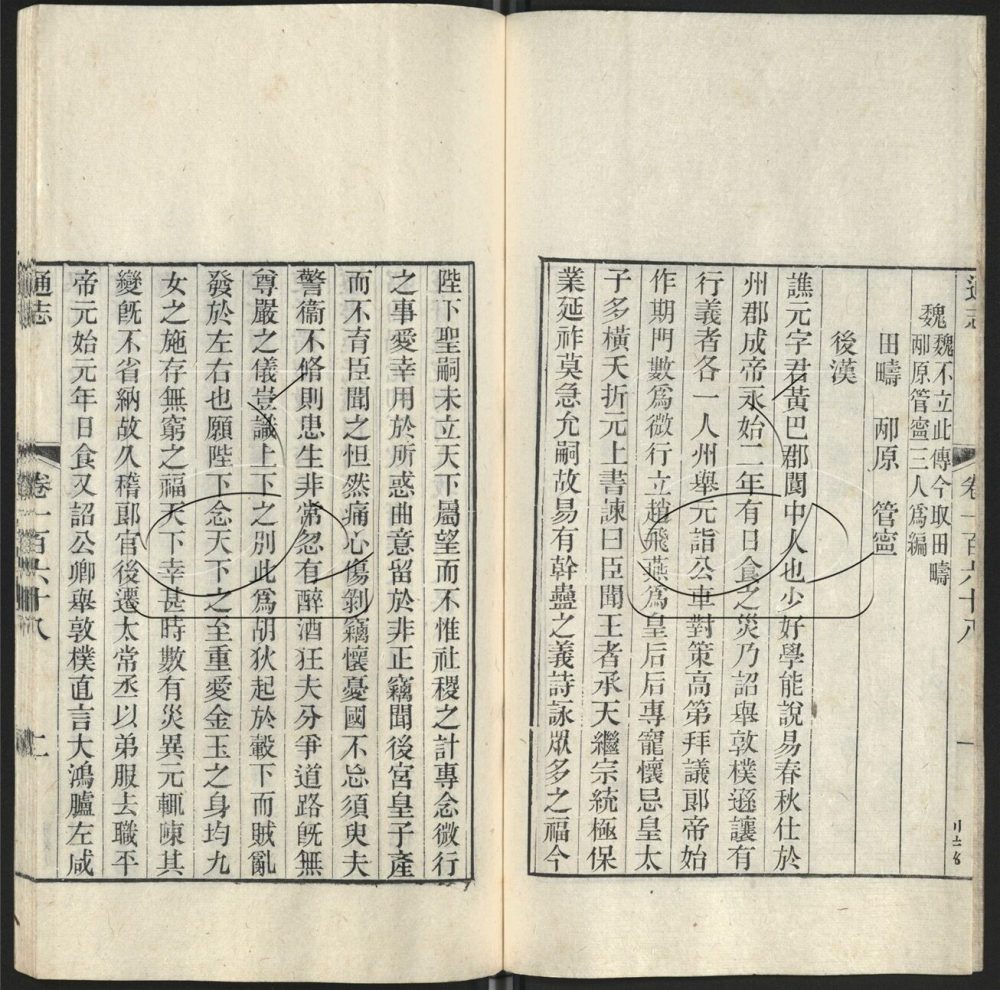 通志
卷一百六十八
一
魏魏不立此傳今取田疇
邴原管寧三人爲編
田疇 邴原 管寧
後漢
譙元字君黃巴郡閬中人也少好學能說易春秋仕於
州郡成帝永始二年有日食之災乃詔舉敦樸遜讓有
行義者各一人州舉元詣公車對策高第拜議郞帝始
作期門數爲微行立趙飛燕爲皇后后專寵懷忌皇太
子多橫夭折元上書諫曰臣聞王者承天繼宗統極保
業延祚莫急允嗣故易有幹蠱之義詩詠眾多之福今
陛下聖嗣未立天下屬望而不惟社稷之計專念微行
之事愛幸用於所惑曲意留於非正竊聞後宮皇子產
而不育臣聞之怛然痛心傷剝竊懷憂國不忘須臾夫
警衞不脩則患生非常忽有醉酒狂夫分爭道路旣無
尊嚴之儀豈識上下之別此爲胡狄起於轂下而賊亂
發於左右也願陛下念天下之至重愛金玉之身均九
女之施存無窮之福天下幸甚時數有災異元輒陳其
變旣不省納故久稽郞官後遷太常丞以弟服去職平
帝元始元年日食又詔公卿舉敦樸直言大鴻臚左咸
通志
卷一百六十八
二